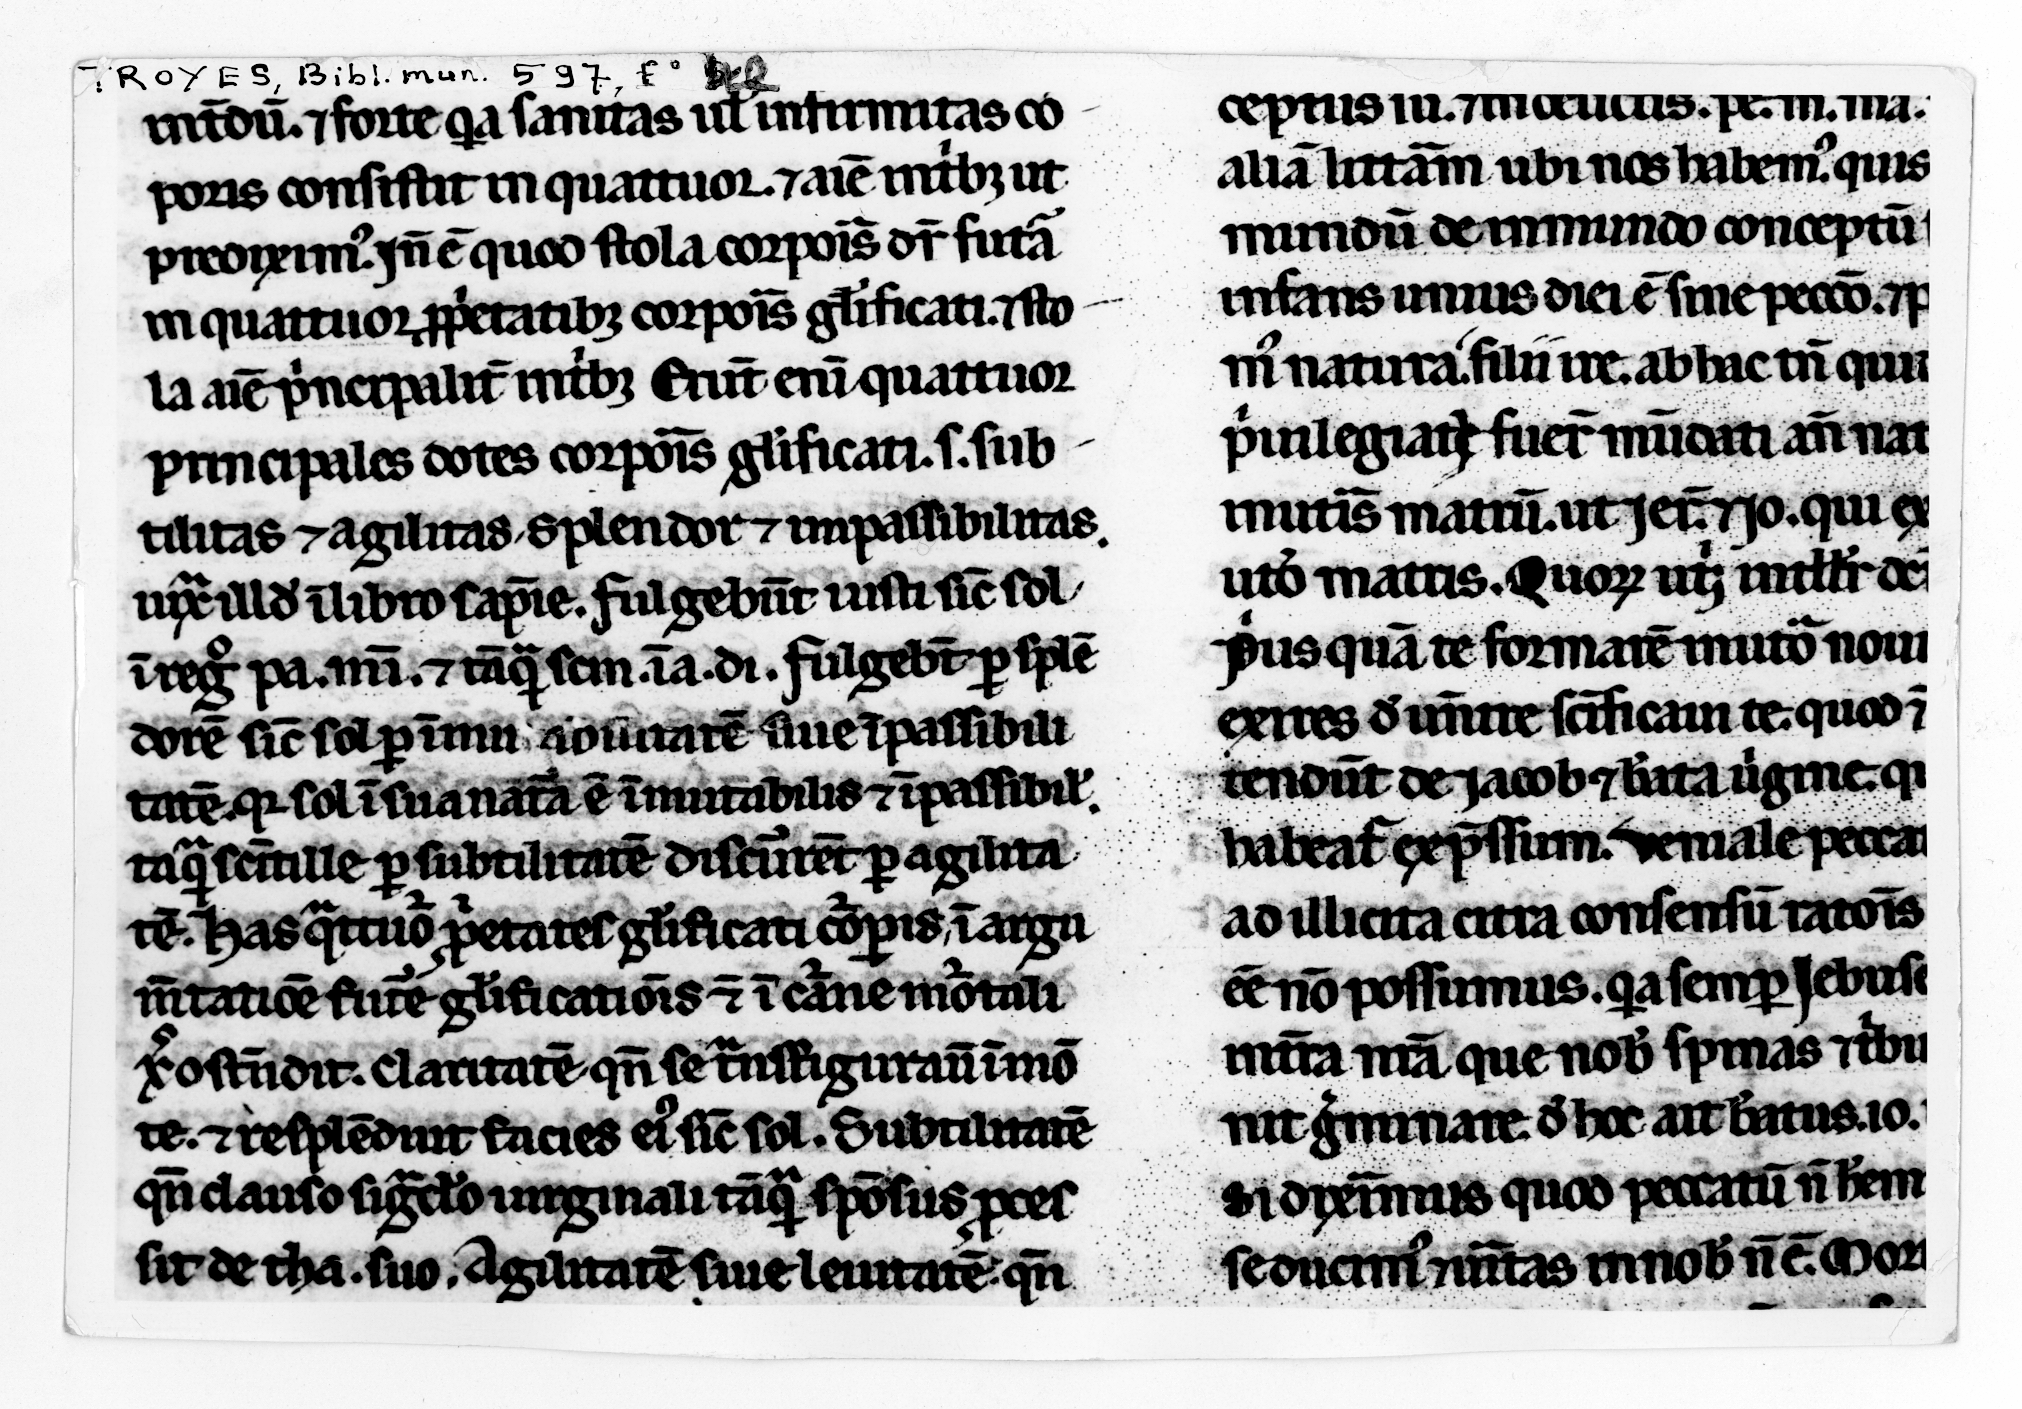 TROYES, Bibl. mun. 597, f°
mt̄dū. ⁊ forte qͥa sanitas ul̄ infirmitas co
poris consistit in quattuor. ⁊ aīe mͥtibꝫ ut
prediximꝰ. Jn̄ ē quod stola corpoīs dr̄ futā
in quattuor ꝓpͥetatibꝫ corpoīs gl̄ificati. ⁊ sto
la aīe pͥncipalit̄ mͥtibꝫ Erūt enī quattuor
principales dotes corpoīs gl̄ificati. s. sub
tilitas ⁊ agilitas. Splendor ⁊ impassibilitas.
iuxͣ illd̄ ī libro sap̄ie. fulgebūt iusti sic̄ sol
ī regͦ pa. mī. ⁊ tāqͣ scin. ī a. di. fulgebt̄ ꝑ splē
dorē sic̄ sol ꝑ īmu sive īpassibili
tatē. qꝛ sol ī sua natā ē īmutabilis ⁊ īpassibil̄.
tāqͣ scītille ꝑ subtilitatē discurrēt ꝑ agilita
tē. Has qͣttuor ꝓpͥetates gl̄ificati corpis, ī argu
m̄tatioē futē gl̄ificatiōis ⁊ ī carne mortali
xp̄s ostn̄dit. Claritatē qn̄ se tͣnsfigurauͥ ī mō
te. ⁊ resplēduit facies eiꝰ sic̄ sol. Subtilitatē
qn̄ clauso sigͣclo uirginali tāqͣ spōsus ꝓces
sit de tha. suo. Agilitatē siue leuitatē. qn̄
ceptus
aliā litt̄am ubi nos habemꝰ. quis
mundū de immundo conceptū
infans unius diei ē sine pecc̄o. ⁊
mꝰ natura filii ire. ab hac tn̄
pͥuilegiate fuer̄ mūdati an̄ nat
mutīs matrū. ut Jer̄. ⁊ Jo. qui ex
uto matris. Quoꝝ utͥqꝫ
pͥus quā te formarē inutō noui
exires d̄ uūlue sc̄ificaui te. quod
tendūt de Jacob ⁊ b̄ata uͥgine.
habeat̄ exp̄ssum. Veniale pecca
ad illicita citra consensū ratoīs
ēe nō possumus. qͥa semꝑ Jebuse
mūa nr̄a que nob̄ spinas ⁊ tͥbu
nit gͥminare. d̄ hoc ait b̄atus. io.
Si dixeīmus quod peccatū n̄ h̄em
seducimꝰ ⁊ uͥtas in nob̄ n̄ ē. Mor